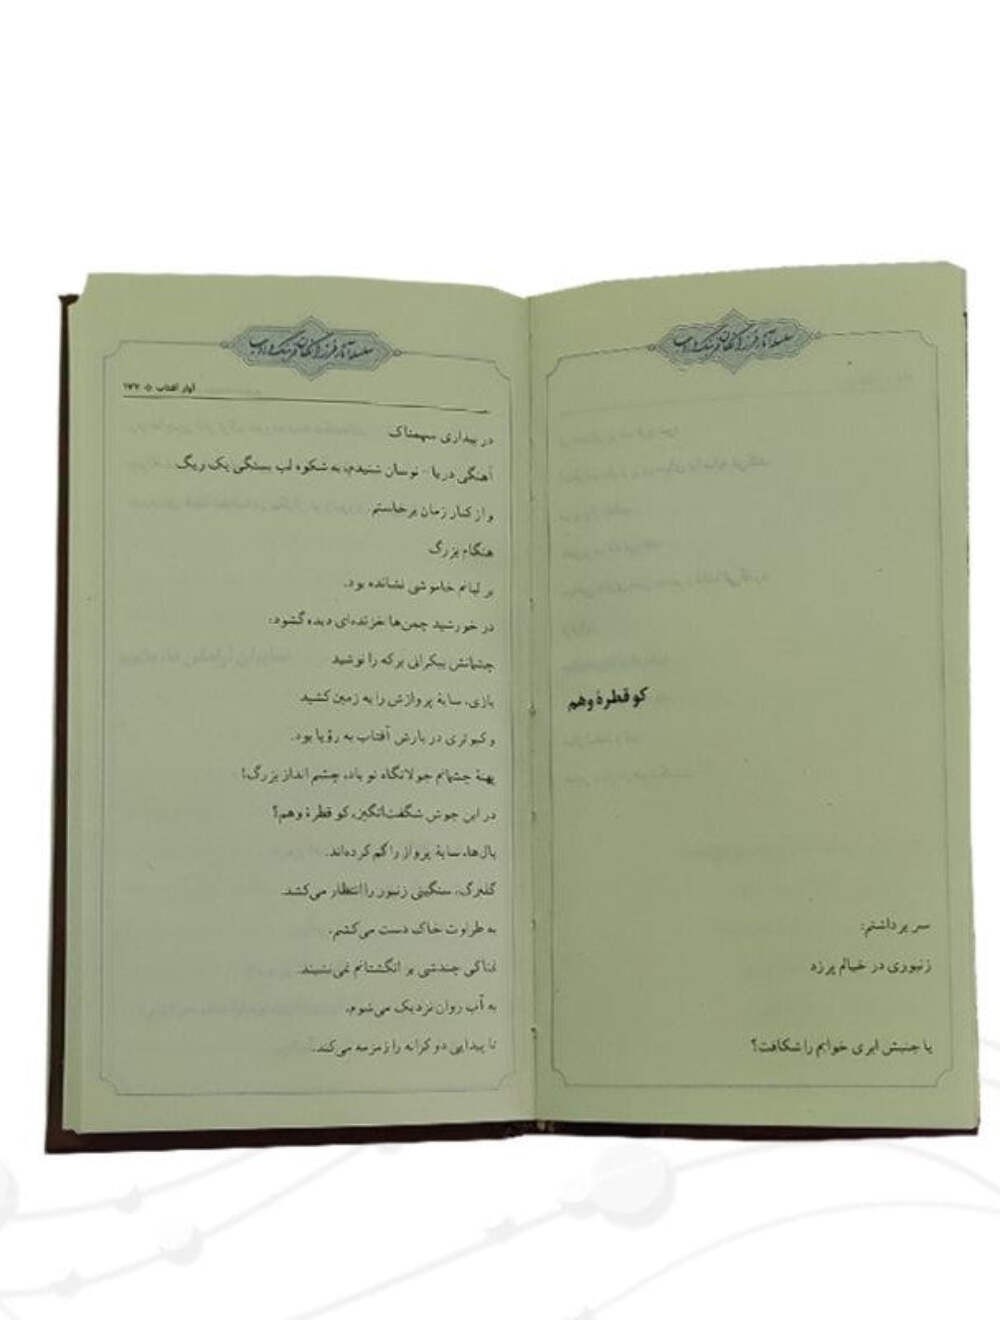 سلسله آثار فرزانگان فرهنگ و ادب
کو قطرهٔ وهم
سر برداشتم:
زنبوری در خیالم پر زد
یا جنبش ابری خوابم را شکافت؟
سلسله آثار فرزانگان فرهنگ و ادب
آوار آفتاب ۱۷۷
در بیداری سهمناک
آهنگی دریا - نوسان شنیدم، به شکوه لب بستگی یک ریگ
و از کنار زمان برخاستم
هنگام بزرگ
بر لبانم خاموشی نشانده بود.
در خورشید چمن‌ها خزنده‌ای دیده گشود:
چشمانش بیکرانی برکه را نوشید
بازی، سایهٔ پروازش را به زمین کشید
و کبوتری در بارش آفتاب به رؤیا بود.
پهنهٔ چشمانم جولانگاه تو باد، چشم انداز بزرگ!
در این جوش شگفت‌انگیز، کو قطرهٔ وهم؟
بال‌ها، سایهٔ پرواز را گم کرده‌اند.
گلبرگ، سنگینی زنبور را انتظار می‌کشد.
به طراوت خاک دست می‌کشم،
نمناکی چندشی بر انگشتانم نمی‌نشیند.
به آب روان نزدیک می‌شوم،
نا پیدایی دو کرانه را زمزمه می‌کند.